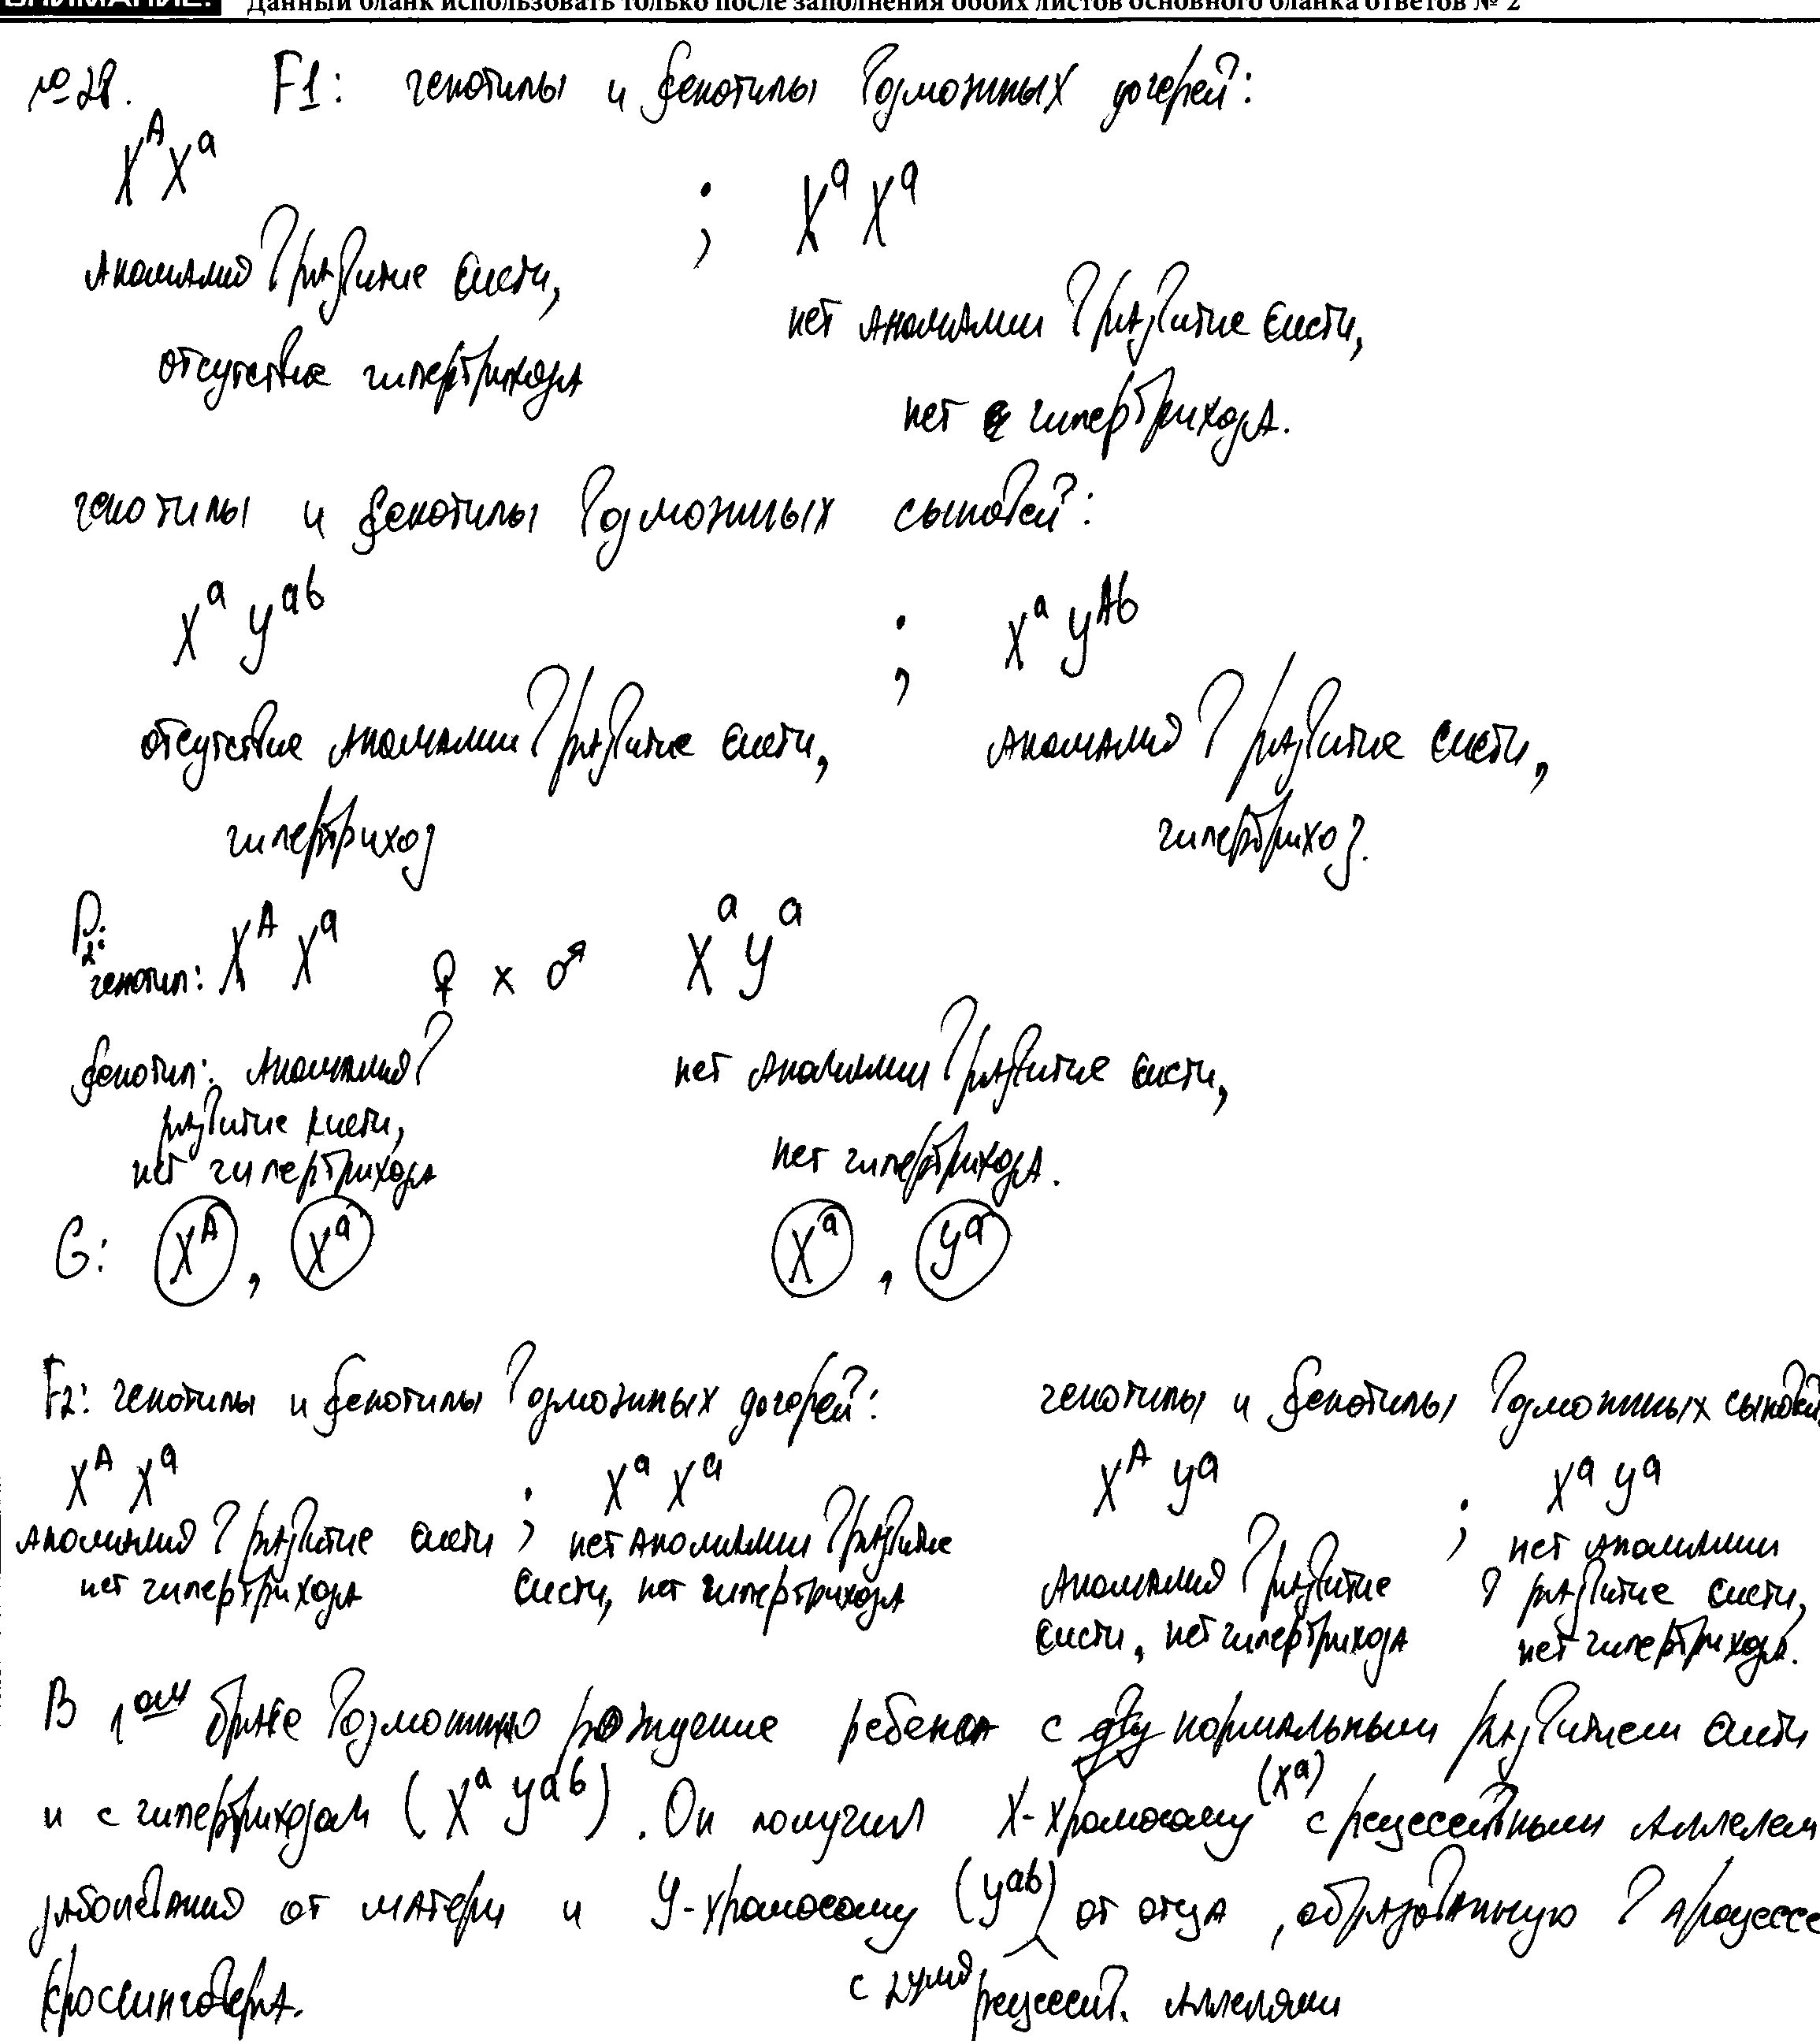 ВНИМАНИЕ! Данный бланк использовать только после заполнения обоих листов основного бланка ответов № 2
№28. F1: генотипы и фенотипы возможных дочерей:
XᴬXᵃ ; XᵃXᵃ
Аномалия в развитие кисти, нет аномалии в развитие кисти,
отсутствие гипертрихоза нет гипертрихоза.
генотипы и фенотипы возможных сыновей:
Xᵃ Yᵃᵇ ; Xᵃ Yᴬᵇ
отсутствие аномалии в развитие кисти, аномалия в развитие кисти,
гипертрихоз гипертрихоз.
P₂:
генотип: Xᴬ Xᵃ ♀ x ♂ Xᵃ Yᵃ
фенотип: Аномалия в нет аномалии в развитие кисти,
развитие кисти,
нет гипертрихоза нет гипертрихоза.
G: Xᴬ , Xᵃ Xᵃ , Yᵃ
F2: генотипы и фенотипы возможных дочерей: генотипы и фенотипы возможных сыновей
Xᴬ Xᵃ ; Xᵃ Xᵃ Xᴬ Yᵃ ; Xᵃ Yᵃ
аномалия в развитие кисти нет аномалии в развитие Аномалия в развитие нет аномалии
нет гипертрихоза кисти, нет гипертрихоза кисти, нет гипертрихоза в развитие кисти,
нет гипертрихоза.
В 1ом браке возможно рождение ребенка с нормальным развитием кисти
и с гипертрихозом (Xᵃ Yᵃᵇ). Он получил X-хромосому (Xᵃ) с рецессивным аллелем
заболевания от матери и Y-хромосому (Yᵃᵇ) от отца, образованную в процессе
кроссинговера. с двумя рецессив. аллелями